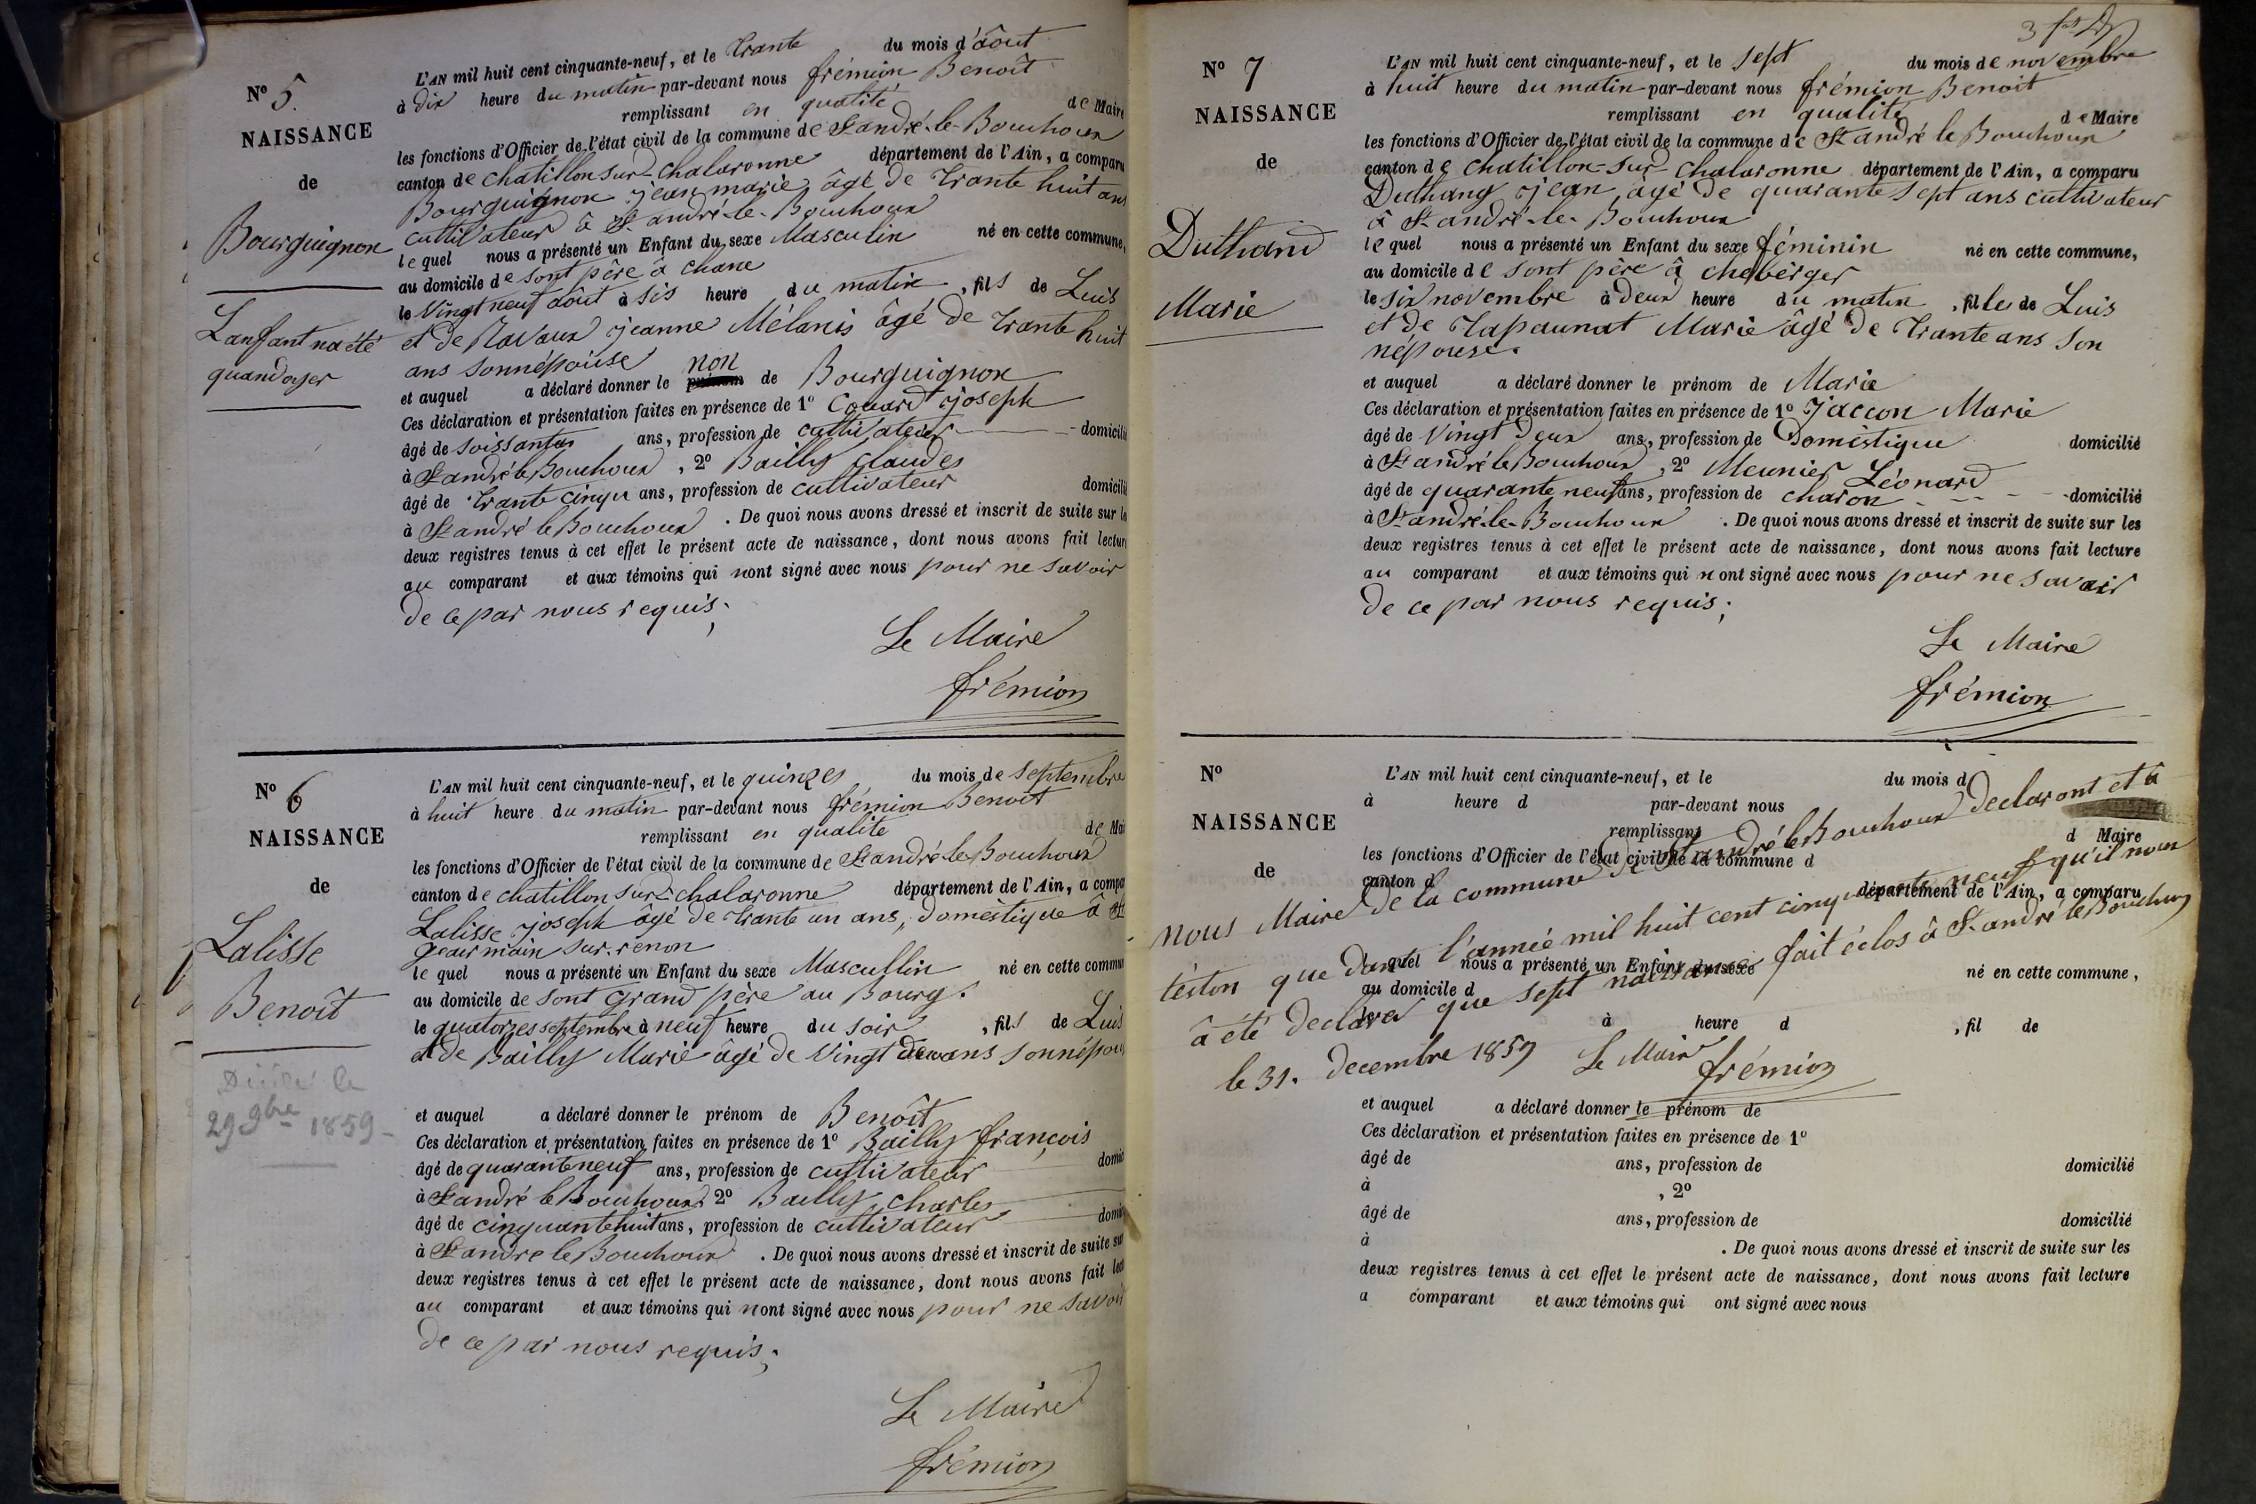 N° 5.
NAISSANCE
de
Bourguignon
Lanfant na été
quandoyer
L'AN mil huit cent cinquante-neuf, et le trante du mois d'août
à dix heure du matin par-devant nous frémion Benoît
remplissant en qualité de Maire
les fonctions d'Officier de l'état civil de la commune de St andré-le-Bouchoux
canton de chatillon sur chalaronne département de l'Ain, a comparu
Bourguignon jean marie, âgé de trante huit ans
cultivateur à St andré-le-Bouchoux
le quel nous a présenté un Enfant du sexe Masculin né en cette commune,
au domicile de sont père à chane
le Vingt neuf août à sis heure du matin, fils de Luis
et de Ravaux jeanne Mélanis âgé de trante huit
ans sonnépouse
et auquel a déclaré donner le prénom non de Bourguignon
Ces déclaration et présentation faites en présence de 1° Couard joseph
âgé de soissantes ans, profession de cultivateur domicilié
à St andré le Bouchoux, 2° Bailly claudes
âgé de trante cinqu ans, profession de cultivateur domicilié
à St andré le Bouchoux. De quoi nous avons dressé et inscrit de suite sur le
deux registres tenus à cet effet le présent acte de naissance, dont nous avons fait lecture
au comparant et aux témoins qui nont signé avec nous pour ne savoir
de ce par nous requis;
Le Maire
frémion
N° 6
NAISSANCE
de
Lalisse
Benoît
29 9bre 1859
L'AN mil huit cent cinquante-neuf, et le quinzes du mois de septembre
à huit heure du matin par-devant nous frémion Benoît
remplissant en qualité de Mai
les fonctions d'Officier de l'état civil de la commune de St andré le Bouchoux
canton de chatillon sur chalaronne département de l'Ain, a compa
Lalisse joseph âgé de trante un ans, domèstique à St
gearmain sur renon
le quel nous a présenté un Enfant du sexe Mascullin né en cette commun
au domicile de sont grand père au Bourg.
le quatorzes septembre à neuf heure du soir, fils de Luis
et de Bailly Marie âgé de Vingt deux ans sonnépou
et auquel a déclaré donner le prénom de Benoît
Ces déclaration et présentation faites en présence de 1° Bailly françois
âgé de quaranteneuf ans, profession de cultivateur domi
à St andré le Bouchoux, 2° Bailly charles
âgé de cinquantehuit ans, profession de cultivateur domi
à St andre le Bouchoux. De quoi nous avons dressé et inscrit de suite sur
deux registres tenus à cet effet le présent acte de naissance, dont nous avons fait lec
au comparant et aux témoins qui nont signé avec nous pour ne savoir
de ce par nous requis;
Le Maire
frémion
N° 7
NAISSANCE
de
Duthand
Marie
L'AN mil huit cent cinquante-neuf, et le sept du mois de novembre
à huit heure du matin par-devant nous frémion Benoit
remplissant en qualité de Maire
les fonctions d'Officier de l'état civil de la commune de St andré le Bouchoux
canton de chatillon-sur chalaronne département de l'Ain, a comparu
Duthang jean, âgé de quarante sept ans cultivateur
à St andré-le-Bouchoux
le quel nous a présenté un Enfant du sexe féminin né en cette commune,
au domicile de sont père à cheberger
le six novembre à deux heure du matin, fille de Luis
et de Tapaunat Marie âgé de trante ans son
népouse.
et auquel a déclaré donner le prénom de Marie
Ces déclaration et présentation faites en présence de 1° Jaccon Marie
âgé de Vingt deux ans, profession de Domèstique domicilié
à St andré le Bouchoux, 2° Meunier Léonard
âgé de quarante neuf ans, profession de charon domicilié
à St andré-le-Bouchoux. De quoi nous avons dressé et inscrit de suite sur les
deux registres tenus à cet effet le présent acte de naissance, dont nous avons fait lecture
au comparant et aux témoins qui nont signé avec nous pour ne savoir
de ce par nous requis;
Le Maire
frémion
N°
NAISSANCE
de
L'AN mil huit cent cinquante-neuf, et le du mois d
à heure d par-devant nous
remplissant d Maire
les fonctions d'Officier de l'état civil de la commune d
canton d département de l'Ain, a comparu
nous Maire de la commune de St andré le Bouchoux declaront et à
téston que dans l'année mil huit cent cinquante neuf qu'il nous
à été declarer que sept naissances fait éclos à St andré le Bouchoux
le 31. decembre 1859 Le Maire frémion
le quel nous a présenté un Enfant du sexe né en cette commune,
au domicile d
le à heure d , fil de
et auquel a déclaré donner le prénom de
Ces déclaration et présentation faites en présence de 1°
âgé de ans, profession de domicilié
à , 2°
âgé de ans, profession de domicilié
à . De quoi nous avons dressé et inscrit de suite sur les
deux registres tenus à cet effet le présent acte de naissance, dont nous avons fait lecture
a comparant et aux témoins qui ont signé avec nous